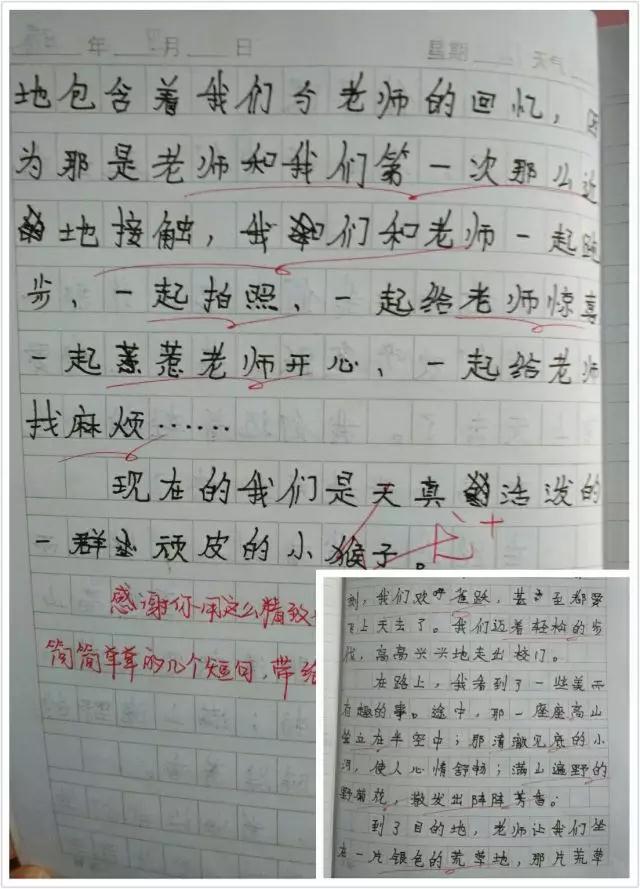 年 月 日 星期
地包含着我们与老师的回忆，因
为那是老师和我们第一次那么近
地接触，我们和老师一起跑
步、一起拍照、一起给老师惊喜
一起惹老师开心、一起给老师
找麻烦……
现在的我们是天真活泼的
一群顽皮的小猴子。
优+
感谢你用这么精致
简简单单的几个短句，带给
刻，我们欢呼雀跃，甚至都要
飞上天去了。我们迈着轻松的步
伐，高高兴兴地走出校门。
在路上，我看到了一些美而
有趣的事。途中，那一座座高山
坐立在半空中；那清澈见底的小
河，使人心情舒畅；满山遍野的
野菊花，散发出阵阵芳香。
到了目的地，老师让我们坐
在一片银色的荒草地，那片荒草